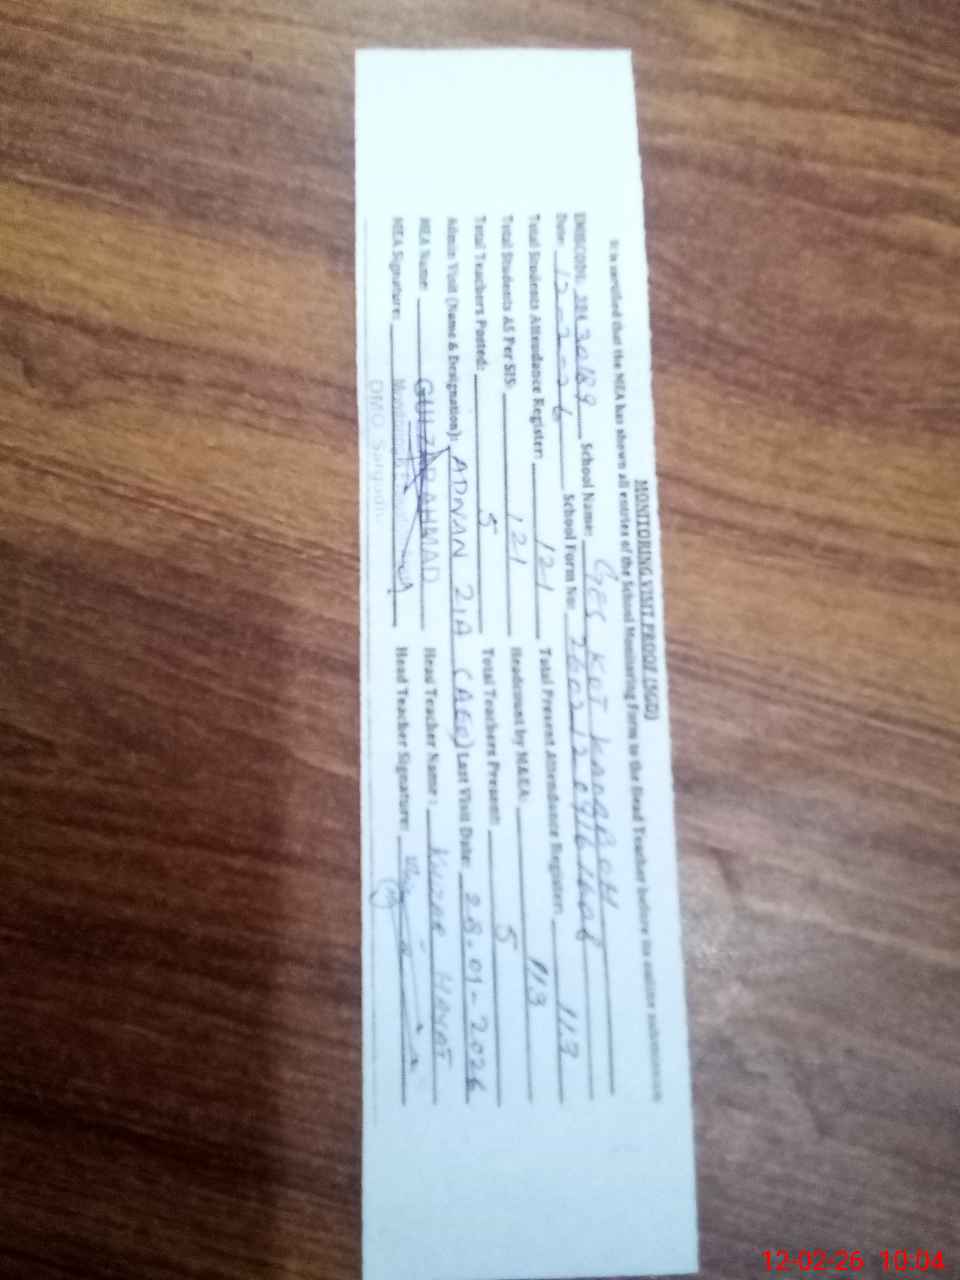 MONITORING VISIT PROOF (SGD)
It is certified that the MEA has shown all entries of the School Monitoring Form to the Head Teacher before its online submission
EMISCODE: 38430189 School Name: GES KOT KAMBOH
Date: 12-2-26 School Form No:
Total Students Attendance Register: 121 Total Present Attendance Register: 113
Total Students AS Per SIS: 121 Headcount by M&EA: 113
Total Teachers Posted: 5 Total Teachers Present: 5
Admin Visit (Name & Designation): ADNAN ZIA (AEO) Last Visit Date: 28.01-2026
MEA Name: GULZAR AHMAD Head Teacher Name: HAYAT
MEA Signature: Head Teacher Signature:
DMO Sargodha
12-02-26 10:04